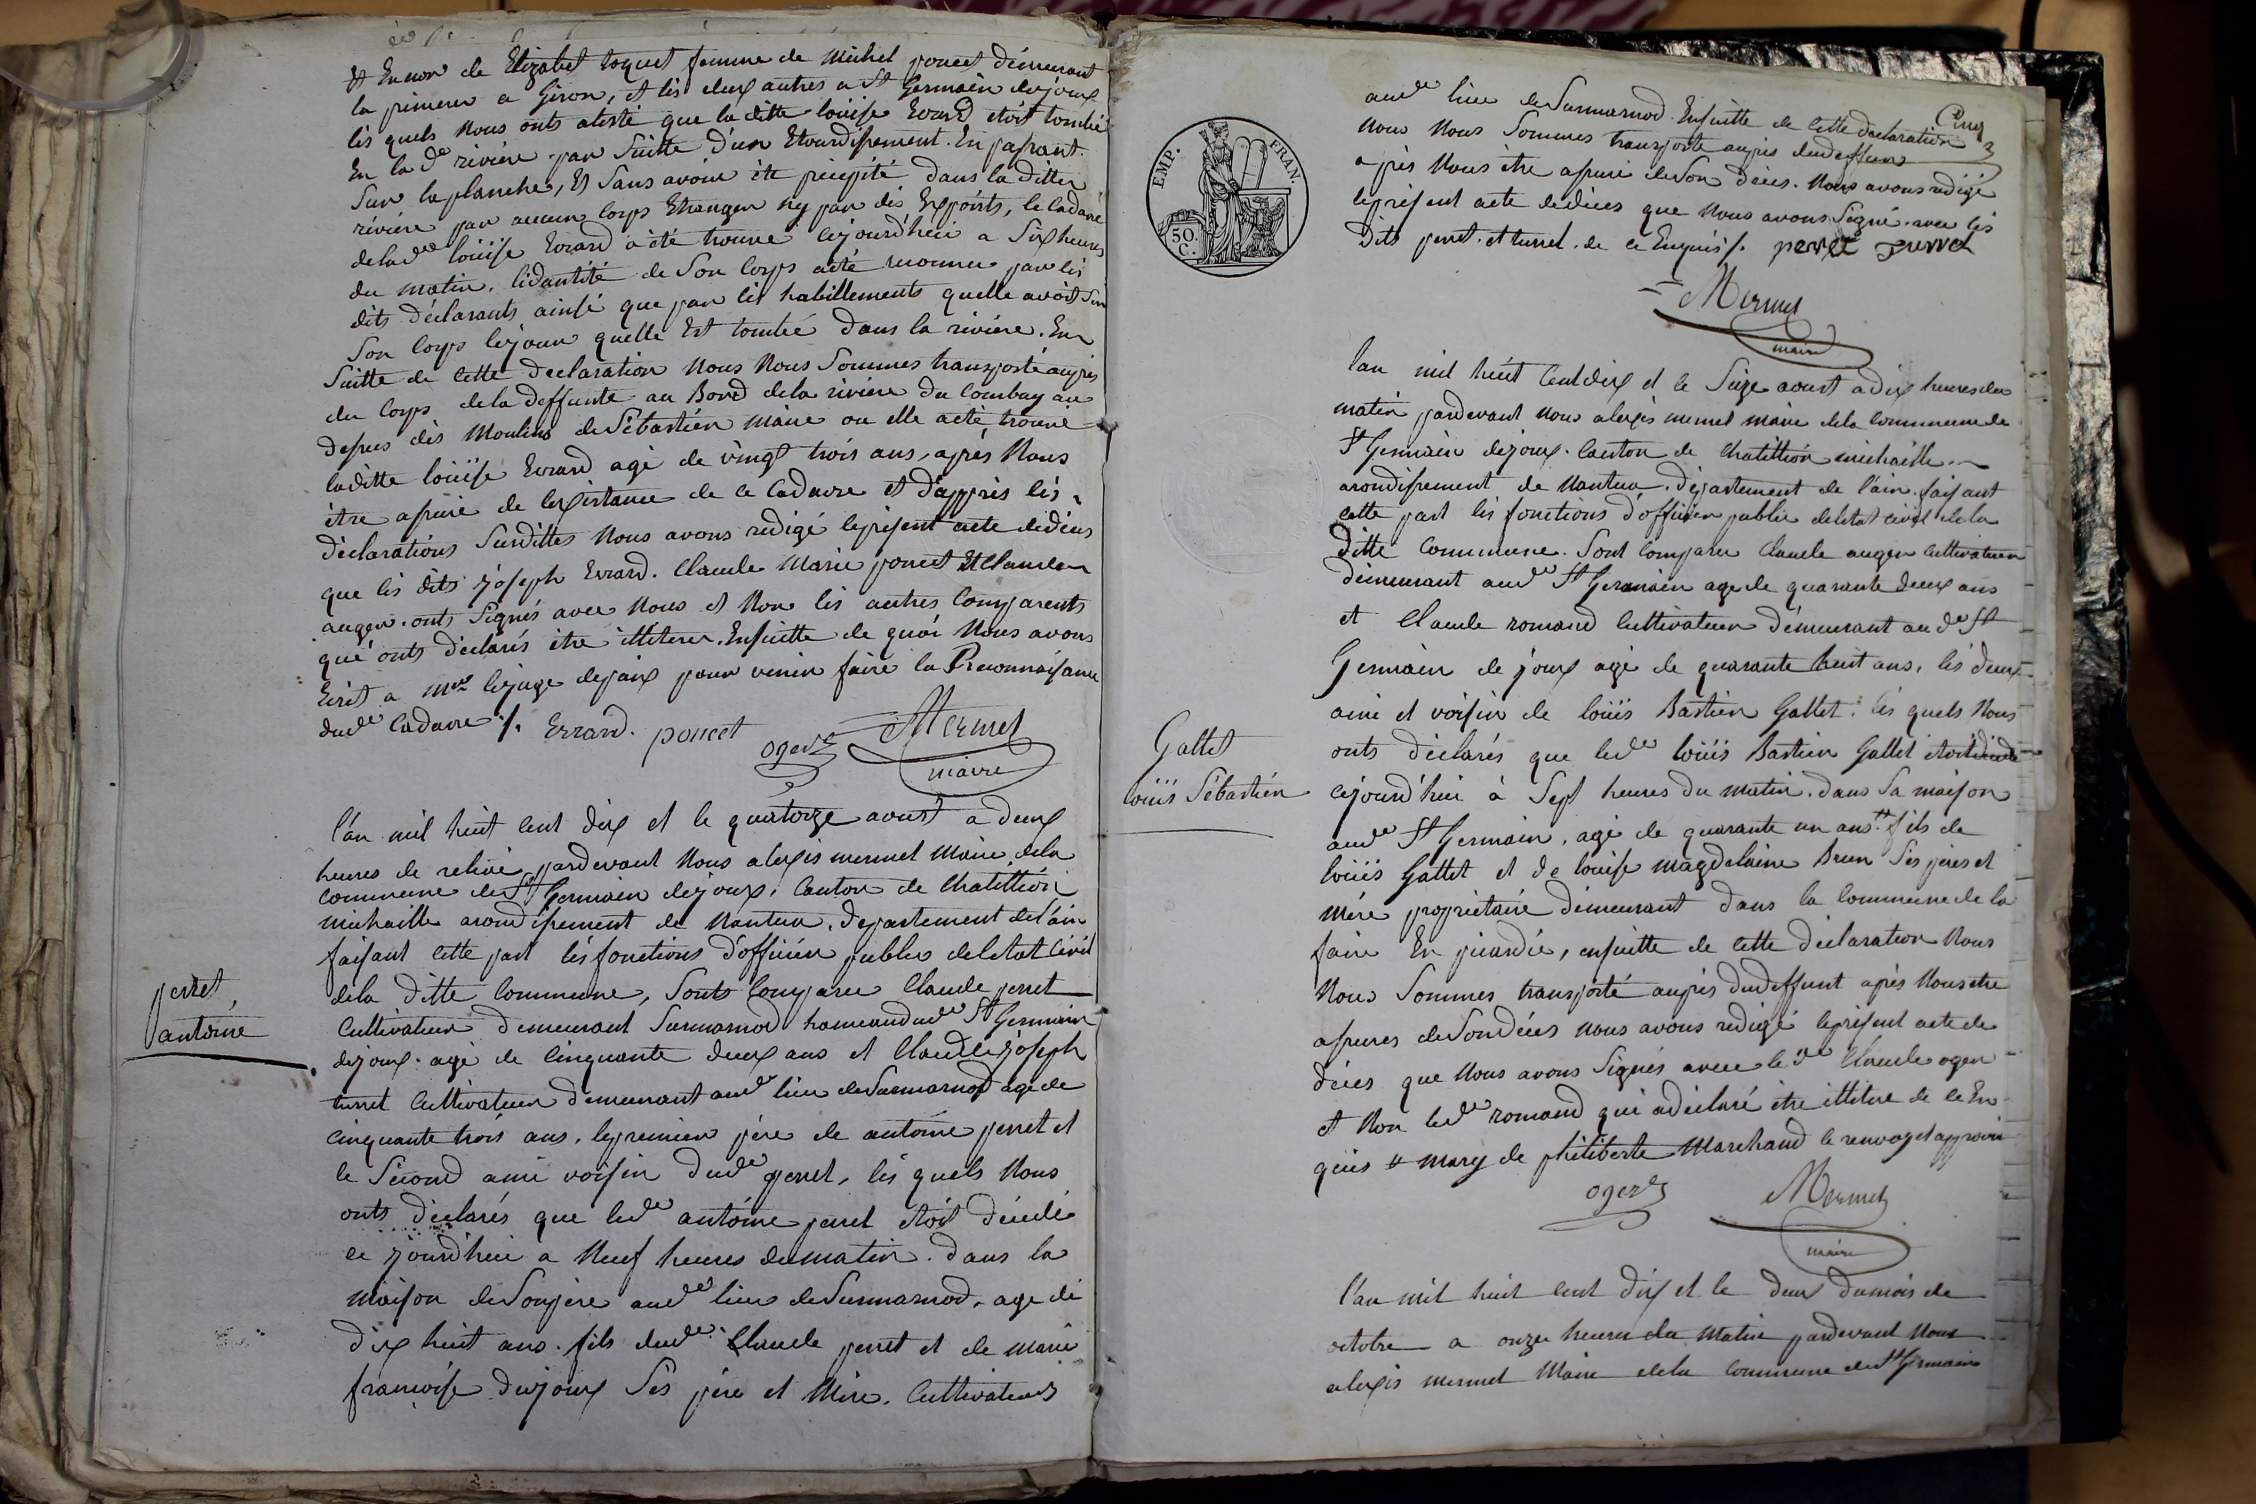 et Encore de Elizabet Coquet femme de Michel poncet démeurant
la primiere a Giron, et lés deux autres a St Germain dejoux
lés quels Nous onts atesté que la ditte loüise Evrard étoit tombé
En la de riviére par Suitte d'un Etourdisement. En passant
Sur la planche, Et Sans avoir été précipité dans la ditte
riviére par aucun Corps Etranger ny par dés Exploits, le Cadavre
dela de loüise Evrard a été trouvé cejourd'hui a Six heures
du matin, lidantité de Son Corps a été reconnu par lés
dits déclarants ainsi que par lés habillements quelle avoit Sur
Son Corps le jour quelle Est tombé dans la riviére. En
Suitte de Cette declaration Nous Nous Sommes transporté auprés
du Corps dela deffunte au Bord dela riviére du Combay au
depus dés Moulins de Sébastién maire ou elle a été trouvé
laditte loüise Evrard agé de vingt trois ans, aprés Nous
étre assuré de lexistance de ce Cadavre et d'apprés lés
déclarations Susdittes Nous avons redigé leprésent acte dedécés
que lés dits joseph Evrard. Claude Marie poncet Et Claude
auger. onts Signés avec Nous et Non lés autres Comparents
qué onts déclarés étre illiteré. Ensuitte de quoi Nous avons
Ecrit a Mr le juge depaix pour venir faire la Reconnaisance
dude Cadavre ./. Evrard. poncet oger Mermet
maire
l'an mil huit cent dix et le quatorze avoust a deux
heures de relivé, pardevant Nous alexis mermet Maire dela
commune de St Germain dejoux, Canton de Chatillion
michaille arondisement de Nantua, Département de l'ain
faisant Cette part lés fonctions d'officién publics deletat Civil
dela ditte Commune, Sonts Comparu Claude perret
Cultivateur demeurant Surmarnod hameau dude St Germain
dejoux. agé de Cinquante deux ans et Claude joseph
turrel Cultivateur demeurant aude lieu de Surmarnod age de
Cinquante trois ans, le premier pére de antoine perret et
le Sécond ami voisin dude perret, lés quels Nous
onts déclarés que lede antoine perret étoit décédé
ce jourd'hui a Neuf heures du matin. dans la
maison de Son pére aude lieu de Surmarnod, age de
Dix huit ans. fils dude Claude perret et de marie
francoise dujoux Sés pére et Mére. Cultivateurs
perret,
antoine
Cinq
aude lieu de Surmarnod. Ensuitte de Cette declaration
Nous Nous Sommes transporté aupres dudeffunt
aprés Nous étre assuré de Son décés. Nous avons redigé
leprésent acte dedécés que Nous avons Signé avec lés
Dits perret. et turrel. de ce Enquis ./. perret turrel
Mermet
maire
EMP. FRAN.
50.
C.
lan mil huit Cent dix et le Seize aoust a dix heures du
matin pardevant Nous alexis mermet maire dela Commune de
St Germain dejoux. Canton de Chatillion michaille
arondisement de Nantua. Département de l'ain. faisant
Cette part lés fonctions d'officién public deletat civil dela
Ditte Commune. Sont Comparu Claude auger Cultivateur
démeurant aude St Germain age de quarante deux ans
et Claude romand Cultivateur démeurant aude St
Germain de joux agé de quarante huit ans, lés deux
ami et voisin de loüis Bastien Gallet. lés quels Nous
onts déclarés que lede loüis Bastien Gallet étoit décédé
cejourd'hui à Sept heures du matin. dans Sa maison
aude St Germain, agé de quarante un ans # fils de
loüis Gallet et de louise magdelaine Brun Sés pére et
Mére propriétaire démeurant dans la Commune de la
faire En picardie, ensuitte de Cette declaration Nous
Nous Sommes transporté auprés dudeffunt aprés Nous etre
assures de Son décés Nous avons redigé leprésent acte de
décés que Nous avons Signés avec le de Claude oger
et Non lede romand qui a déclaré étre illiteré de ce En
quis # mary de philiberte Marchand le renvoy et approuvé
oger Mermet
maire
Gallet
loüis Sébastién
l'an mil huit cent dix et le deux dumois de
octobre a onze heures du Matin pardevant Nous
alexis mermet Maire dela Commune de St Germain